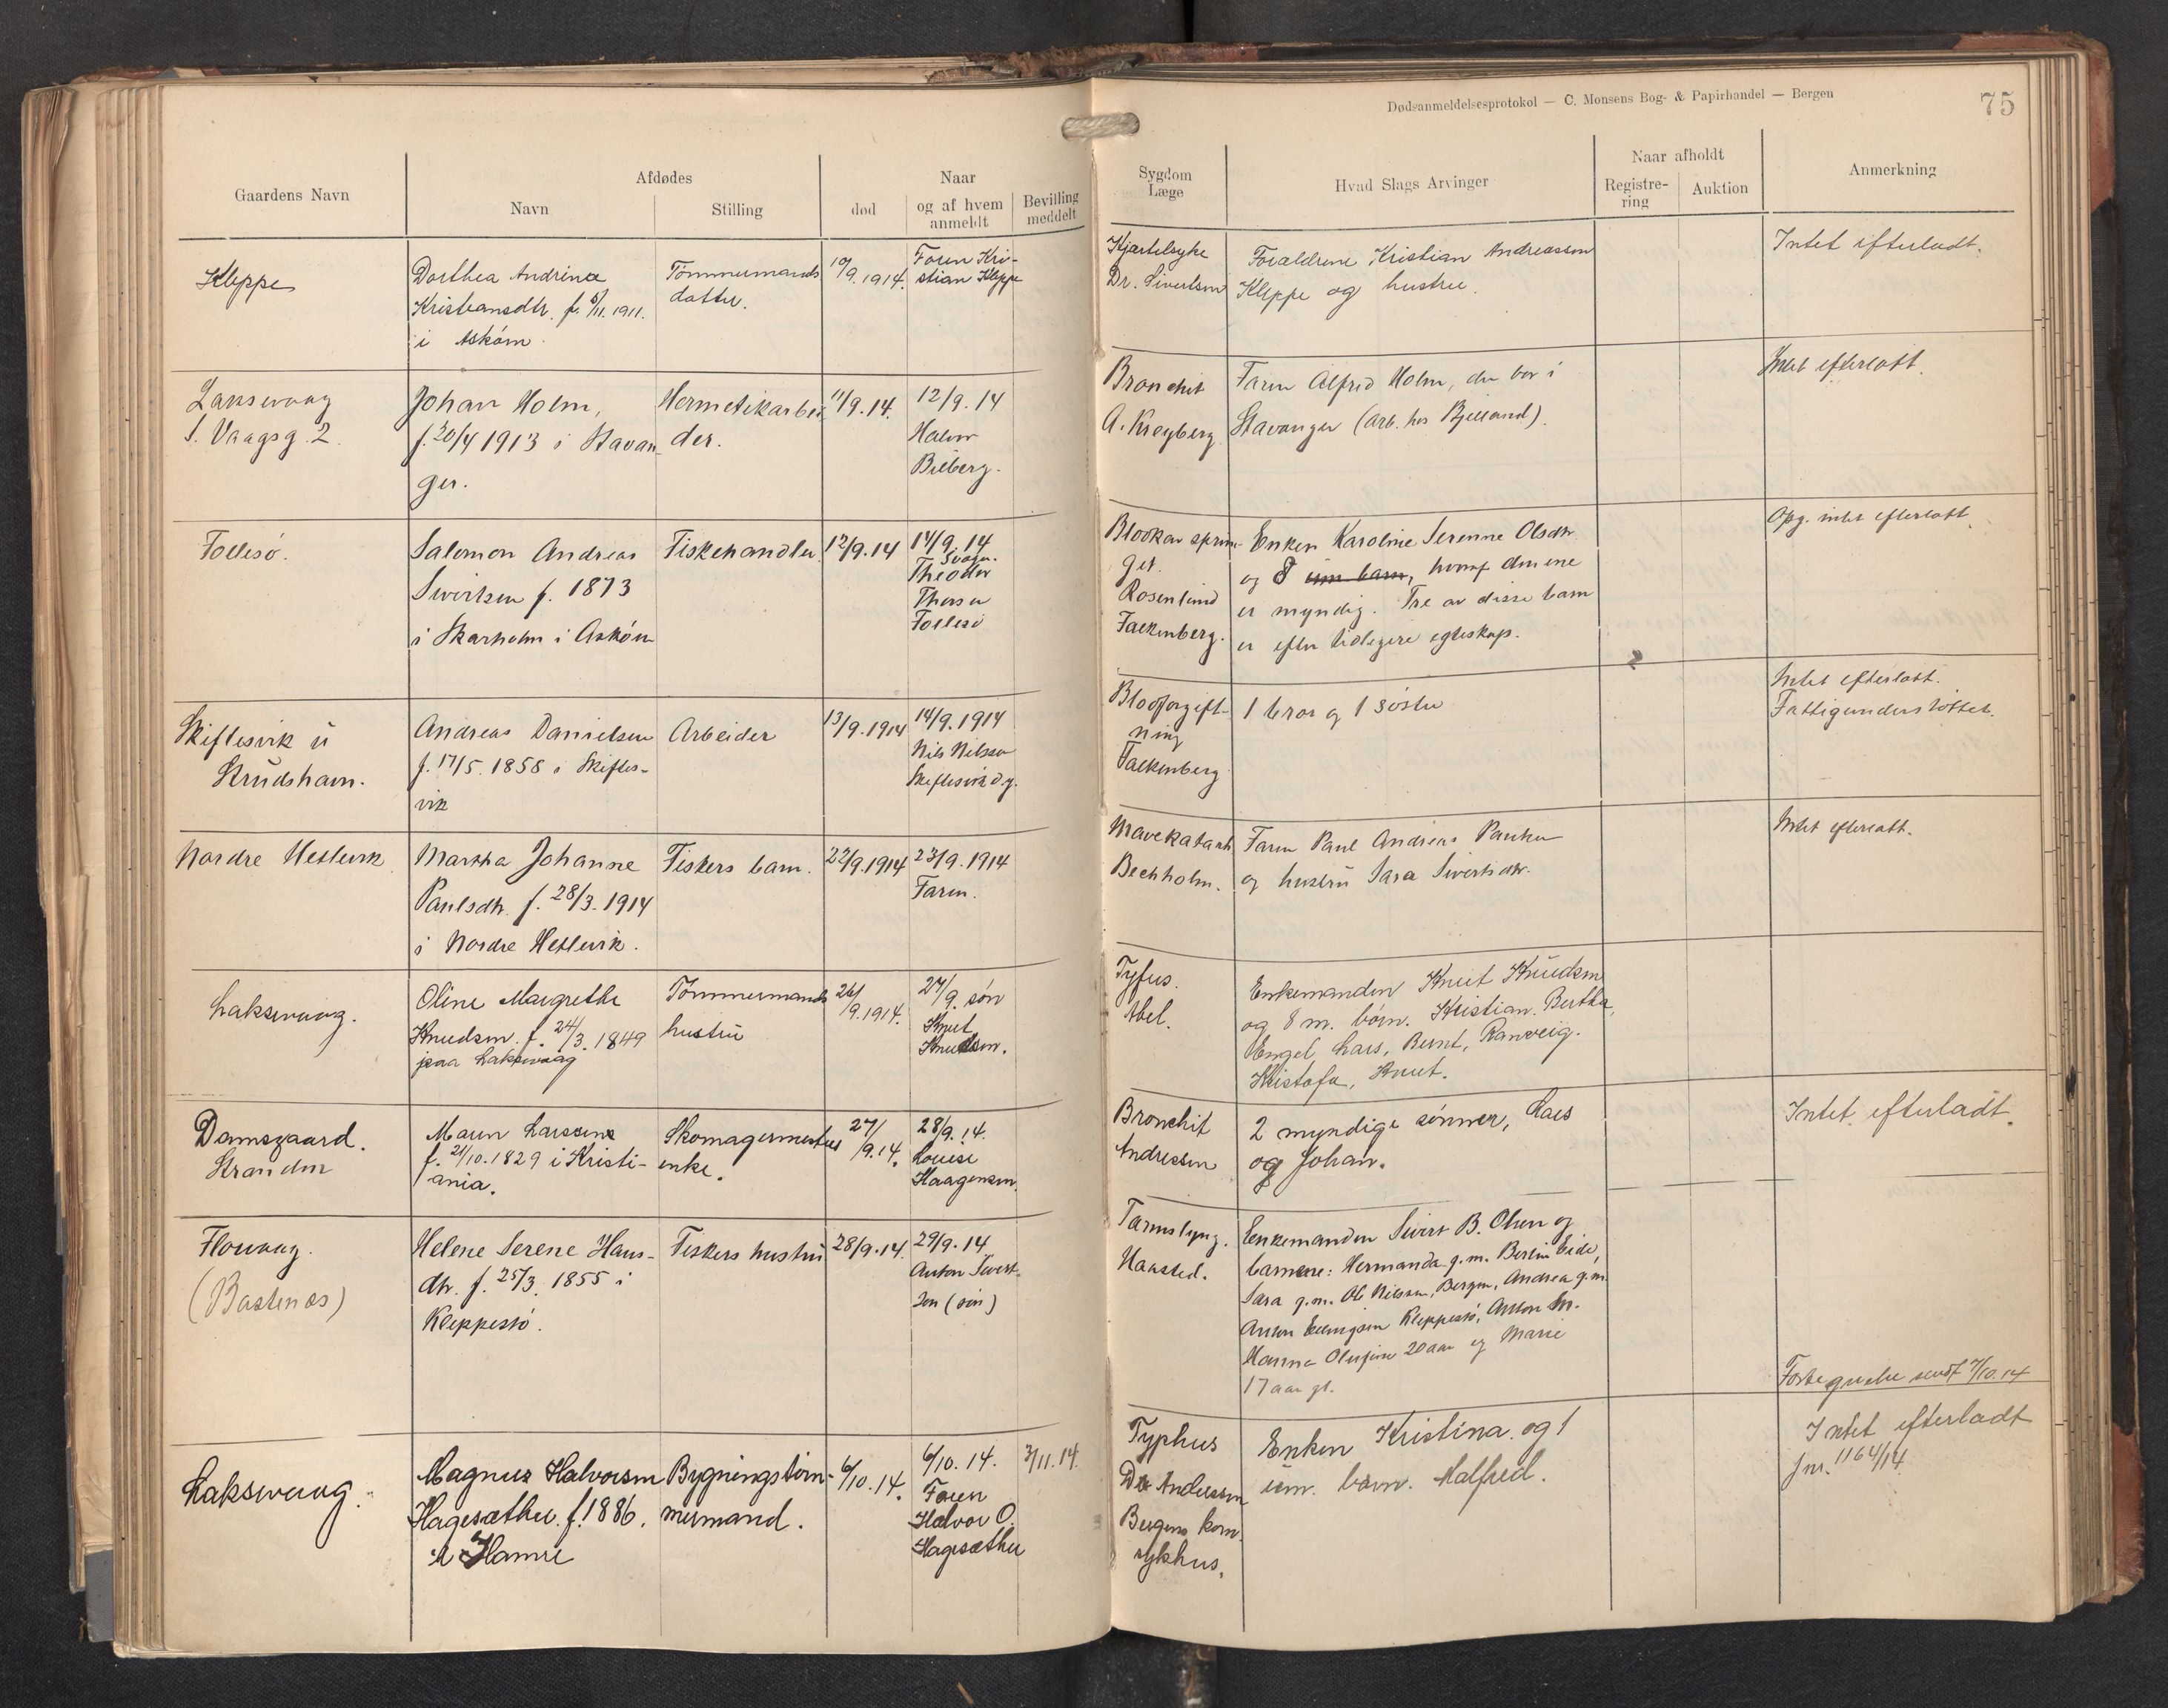 Dødsanmeldelsesprotokol — C. Monsens Bog- & Papirhandel — Bergen
75
Gaardens Navn
Afdødes
Navn
Stilling
død
Naar
og af hvem
anmeldt
Bevilling
meddelt
Sygdom
Læge
Hvad Slags Arvinger
Naar afholdt
Registre-
ring
Auktion
Anmerkning
Kleppe
Dorthea Andrina
Kristiansdtr. f. 5/11. 1911.
i Askøen
Tømmermands
datter.
10/9. 1914.
Faren Kri-
stian Kleppe
Kjertelsyke
Dr. Sivertsen
Forældrene Kristian Andreassen
Kleppe og hustru.
Intet efterladt.
Laksevaag
S. Vaagsg. 2.
Johan Holm,
f. 30/4 1913 i Stavan-
ger.
Hermetikarbei-
der.
11/9. 14.
12/9. 14
Halvor
Bieberg.
Bronchit
A. Kreyberg
Faren Alfred Holm, der bor i
Stavanger (arb. hos Bjelland).
Intet efterlatt.
Follesø.
Salomon Andreas
Sivertsen f. 1873
i Skarholm i Askøen
Fiskehandler
12/9. 14
14/9. 14
Svoger.
Theodor
Thorsen
Follesø
Blodkar spræn-
ger.
Rosenlund
Falkenberg.
Enken Karoline Serenne Olsdtr.
og 8 um. barn, hvoraf den ene
er myndig. Tre av disse barn
er efter tidligere egteskap.
Opg. intet efterlatt.
Skiflesvik i
Strudshavn.
Andreas Danielsen
f. 17/5. 1858 i Skifles-
vik
Arbeider
13/9. 1914
14/9. 1914
Nils Nilsson
Skiflesvik
Blodforgift-
ning
Falkenberg
1 bror og 1 søster
Intet efterlatt.
Fattigunderstøttet.
Nordre Hetlevik
Martha Johanne
Paulsdtr. f. 28/3. 1914
i Nordre Hetlevik.
Fiskers barn.
22/9. 1914
23/9. 1914
Faren.
Mavekatarrh
Bechholm.
Faren Paul Andreas Paulsen
og hustru Sara Sivertsdtr.
Intet efterlatt.
Laksevaag.
Oline Margrethe
Knudsen. f. 24/3. 1849
paa Laksevaag
Tømmermands
hustru
26/9. 1914.
27/9. søn
Knut
Knudsen.
Tyfus.
Abel.
Enkemanden Knut Knudsen
og 8 m. børn. Kristian. Bertha,
Engel, Lars, Bernt, Ranveig.
Kristofa, Knut.
Damsgaard.
Stranden
Maren Larssens
f. 21/10. 1829 i Kristi-
ania.
Skomagermesters
enke.
27/9. 14.
28/9. 14.
Louise
Haagensen.
Bronchit
Andressen
2 myndige sønner, Lars
og Johan.
Intet efterladt.
Florvaag.
(Bastenes)
Helene Serene Hans-
dtr. f. 25/3. 1855 i
Kleppestø.
Fiskers hustru
28/9. 14.
29/9. 14.
Anton Sivert-
sen (søn)
Tarmslyng.
Haasted.
Enkemanden Sivert B. Olsen og
barnene: Hermanda g.m. Bertin Eide,
Sara g.m. Ole Nilssen, Bergen, Andrea g.m.
Anton Ellingsen Kleppestø, Anton
Hanna Olufine 20 aar og Marie
17 aar gl.
Forbegjære sendt 7/10. 14
Laksevaag.
Magnus Halvorsen
Hagesæther. f. 1886.
i Hamre
Bygningstøm-
mermand.
6/10. 14.
6/10. 14.
Faren
Halvor O.
Hagesæther
3/11. 14.
Typhus
Dr. Andersen
Bergens kom.
sykhus.
Enken Kristina. og 1
um. barn. Malfred.
Intet efterladt
jnr. 1164/14